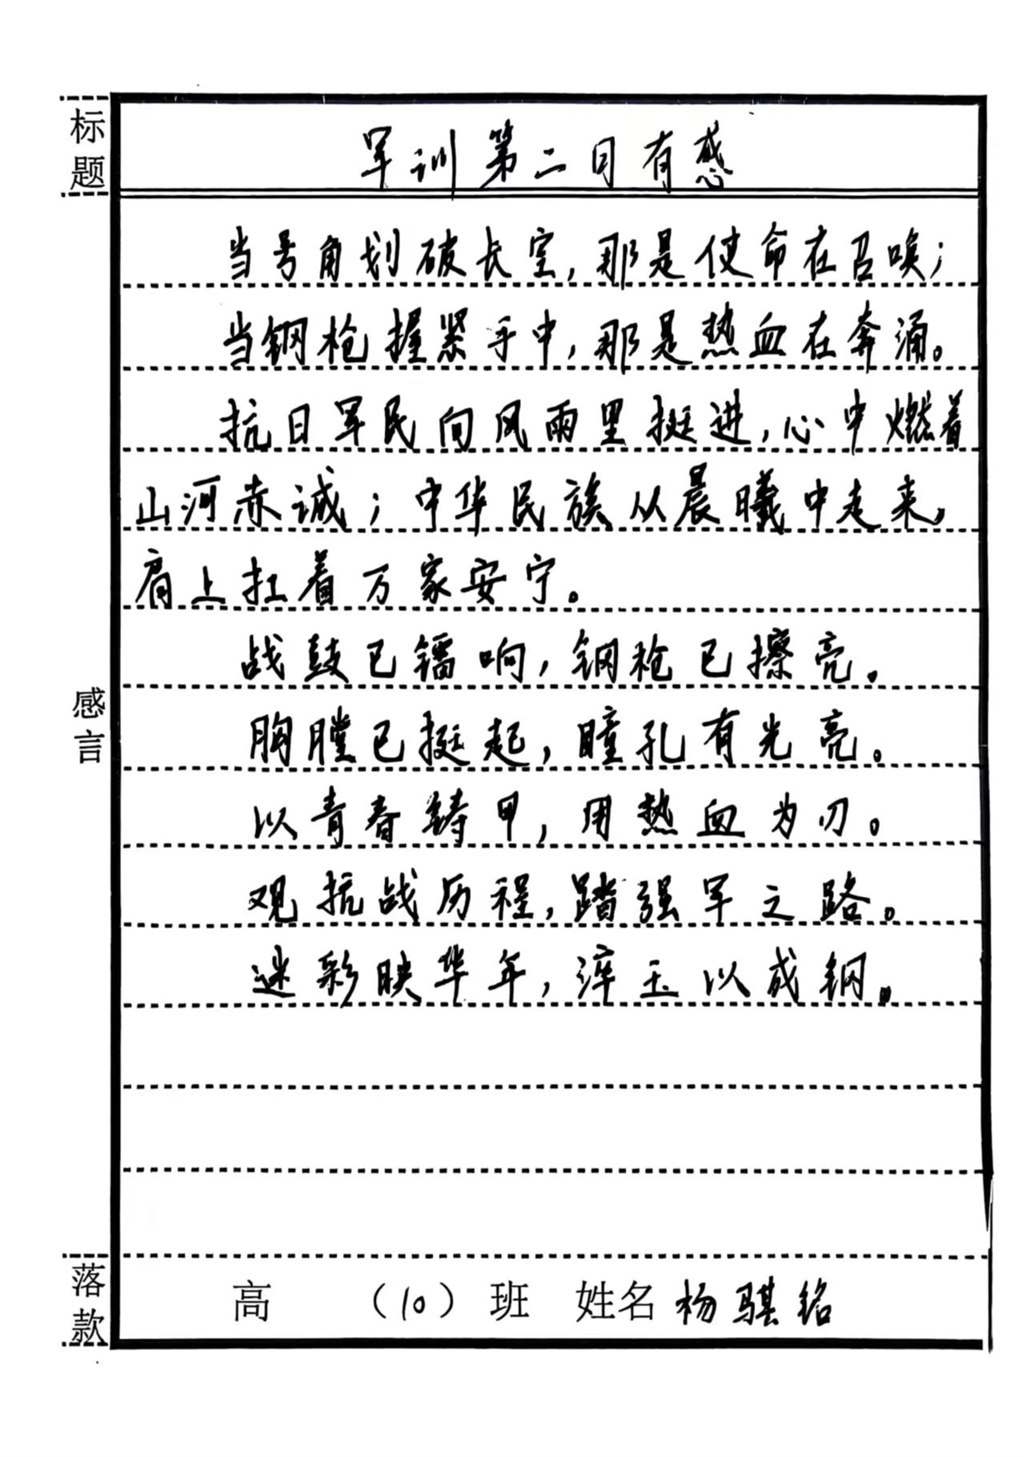 标题
军训第二日有感
当号角划破长空，那是使命在召唤；
当钢枪握紧手中，那是热血在奔涌。
抗日军民向风雨里挺进，心中燃着
山河赤诚；中华民族从晨曦中走来，
肩上扛着万家安宁。
战鼓已镭响，钢枪已擦亮。
胸膛已挺起，瞳孔有光亮。
以青春铸甲，用热血为刃。
观抗战历程，踏强军之路。
迷彩映华年，淬玉以成钢。
感言
落款
高 （10）班 姓名 杨骐铭